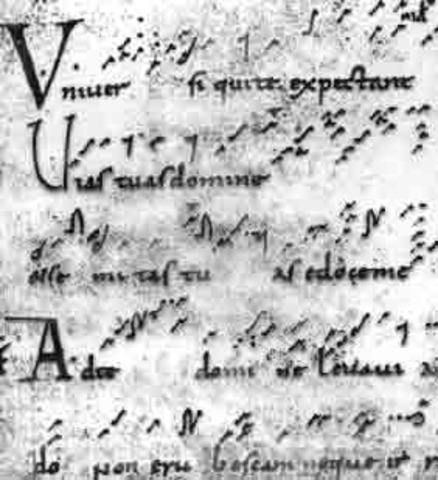 Vniuer si qui te expectant
Uias tuas domine
osse mi tas tu as edoceme
Adte domi ne leuaui
do non eru bescam neque